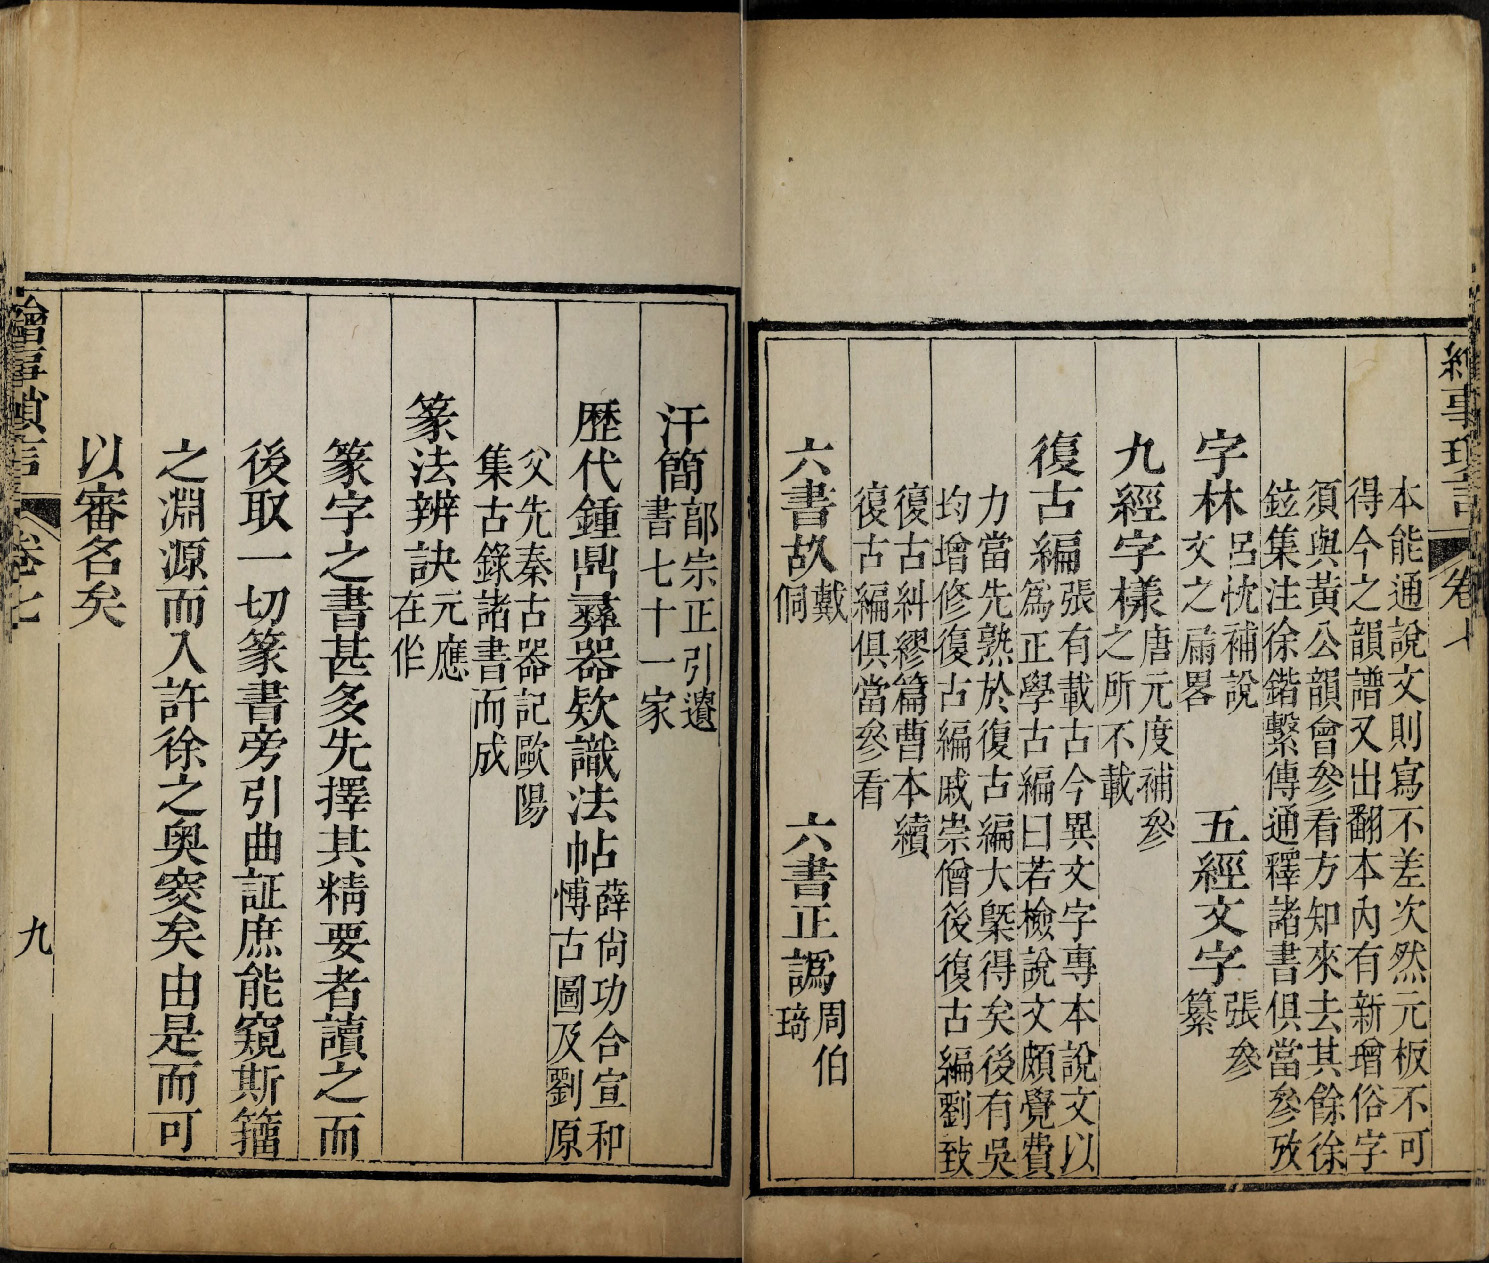 繪事瑣言 卷七
本能通說文則寫不差次然元板不可
得今之韻譜又出翻本內有新增俗字
須與黃公韻會參看方知來去其餘徐
鉉集注徐鍇繫傳通釋諸書俱當參攷
字林 呂忱補說
文之扁畧
五經文字 張參
纂
九經字樣 唐元度補參
之所不載
復古編 張有載古今異文字專本說文以
爲正學古編曰若檢說文頗覺費
力當先熟於復古編大槩得矣後有吳
均增修復古編戚崇僧後復古編劉致
復古糾繆篇曹本續
復古編俱當參看
六書故 戴
侗
六書正譌 周伯
琦
汗簡 郭宗正引遺
書七十一家
歷代鍾鼎彝器欵識法帖 薛尙功合宣和
博古圖及劉原
父先秦古器記歐陽
集古錄諸書而成
篆法辨訣 元應
在作
篆字之書甚多先擇其精要者讀之而
後取一切篆書旁引曲証庶能窺斯籀
之淵源而入許徐之奥窔矣由是而可
以審名矣
繪事瑣言 卷七 九